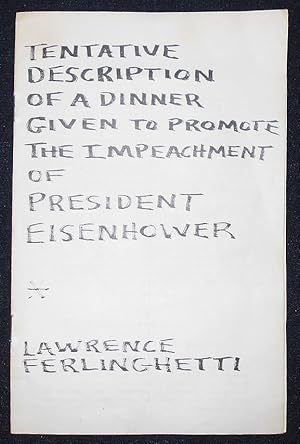 TENTATIVE
DESCRIPTION
OF A DINNER
GIVEN TO PROMOTE
THE IMPEACHMENT
OF
PRESIDENT
EISENHOWER
LAWRENCE
FERLINGHETTI